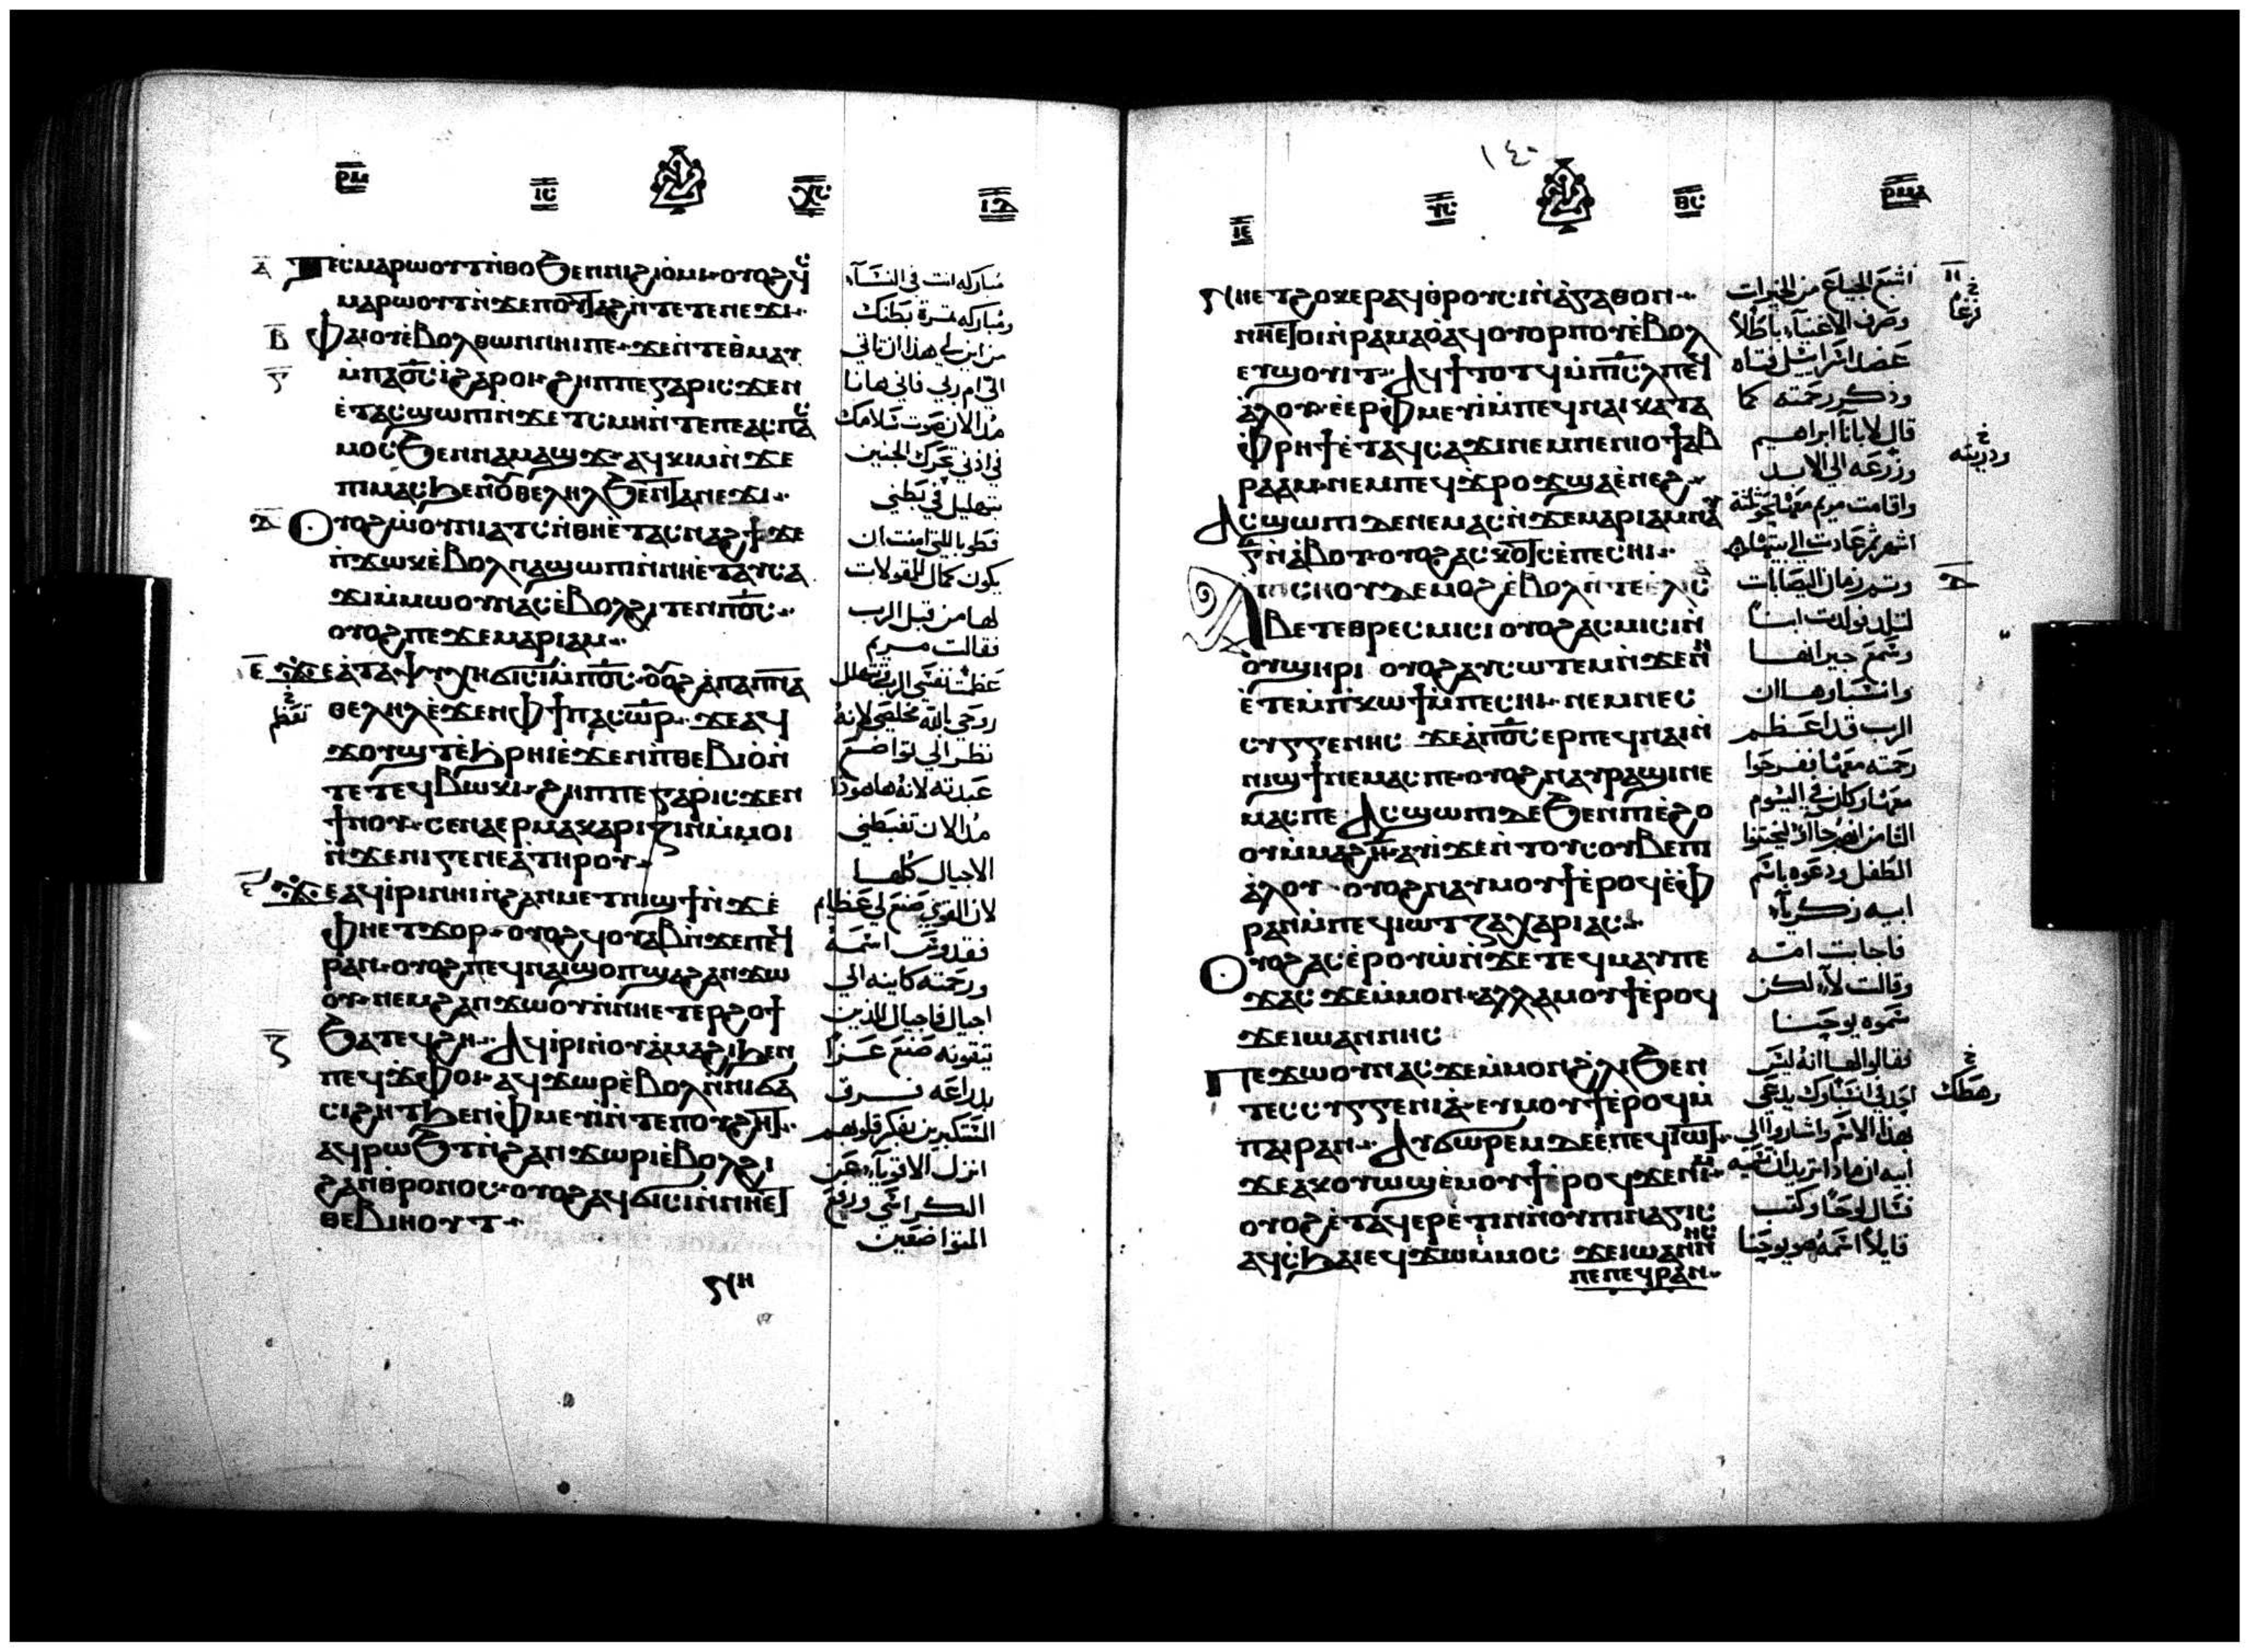 ⲣⲙ ⲓⲥ ⲭⲥ ⲓⲇ
ⲁ ⲧⲉⲥⲙⲁⲣⲱⲟⲩⲧ ⲛ̀ⲑⲟ ϧⲉⲛ ⲛⲓϩⲓⲟ̀ⲙⲓ· ⲟⲩⲟϩ ϥ̀ⲥ
ⲙⲁⲣⲱⲟⲩⲧ ⲛ̀ϫⲉ ⲡⲟⲩⲧⲁϩ ⲛ̀ⲧⲉ ⲧⲉⲛⲉϫⲓ·
ⲃ ⲫⲁⲓ ⲟⲩⲉ̀ⲃⲟⲗ ⲑⲱⲛ ⲛⲏⲓ ⲡⲉ· ϫⲉ ⲛ̀ⲧⲉ ⲑ̀ⲙⲁⲩ
ⲅ ⲙ̀ⲡⲁϭⲥ ⲓ̀ ϩⲁⲣⲟⲓ· ϩⲏⲡⲡⲉ ⲅⲁⲣ ⲓⲥϫⲉⲛ
ⲉ̀ⲧⲁⲥϣⲱⲡⲓ ⲛ̀ϫⲉ ⲧ̀ⲥⲙⲏ ⲛ̀ⲧⲉ ⲡⲉⲁⲥⲡⲁⲥ
ⲙⲟⲥ ϧⲉⲛ ⲛⲁⲙⲁϣϫ· ⲁϥⲕⲓⲙ ⲛ̀ϫⲉ
ⲡⲓⲙⲁⲥ ϧⲉⲛ ⲟⲩⲑⲉⲗⲏⲗ ϧⲉⲛ ⲧⲁⲛⲉϫⲓ·
ⲇ ⲟⲩⲟϩ ⲱ̀ⲟⲩⲛⲓⲁⲧⲥ ⲛ̀ⲑⲏ ⲉ̀ⲧⲁⲥⲛⲁϩϯ ϫⲉ
ⲡ̀ϫⲱⲕ ⲉ̀ⲃⲟⲗ ⲛⲁϣⲱⲡⲓ ⲛ̀ⲛⲏ ⲉ̀ⲧⲁⲩⲥⲁ
ϫⲓ ⲙ̀ⲙⲱⲟⲩ ⲛⲁⲥ ⲉ̀ⲃⲟⲗ ϩⲓⲧⲉⲛ ⲡϭⲥ·
ⲟⲩⲟϩ ⲡⲉϫⲉ ⲙⲁⲣⲓⲁⲙ·
ⲉ ϫⲉ ⲁ̀ ⲧⲁⲯⲩⲭⲏ ϭⲓⲥⲓ ⲙ̀ⲡϭⲥ· ⲟⲩⲟϩ ⲁ̀ ⲡⲁⲡⲛⲁ
ⲑⲉⲗⲏⲗ ⲉ̀ϫⲉⲛ ⲫϯ ⲡⲁⲥⲱⲣ· ϫⲉ ⲁϥ
ϫⲟⲩϣⲧ ⲉ̀ϧⲣⲏⲓ ⲉ̀ϫⲉⲛ ⲡ̀ⲑⲉⲃⲓⲟ̀ ⲛ̀
ⲧⲉ ⲧⲉϥⲃⲱⲕⲓ· ϩⲏⲡⲡⲉ ⲅⲁⲣ ⲓⲥϫⲉⲛ
ϯⲛⲟⲩ· ⲥⲉⲛⲁⲉⲣⲙⲁⲕⲁⲣⲓⲍⲓⲛ ⲙ̀ⲙⲟⲓ
ⲛ̀ϫⲉ ⲛⲓⲅⲉⲛⲉⲁ̀ ⲧⲏⲣⲟⲩ·
ⲋ ϫⲉ ⲁϥⲓ̀ⲣⲓ ⲛⲏⲓ ⲛ̀ϩⲁⲛⲙⲉⲧⲛⲓϣϯ ⲛ̀ϫⲉ
ⲫⲏⲉⲧϫⲟⲣ· ⲟⲩⲟϩ ϥⲟⲩⲁⲃ ⲛ̀ϫⲉ ⲡⲉϥ
ⲣⲁⲛ· ⲟⲩⲟϩ ⲡⲉϥⲛⲁⲓ ϣⲟⲡ ϣⲁ ϩⲁⲛϫⲱ
ⲟⲩ· ⲛⲉⲙ ϩⲁⲛϫⲱⲟⲩ ⲛ̀ⲛⲏⲉⲧⲉⲣϩⲟϯ
ⲍ ϧⲁⲧⲉϥϩⲏ· ⲁϥⲓ̀ⲣⲓ ⲛ̀ⲟⲩⲁ̀ⲙⲁϩⲓ ϧⲉⲛ
ⲡⲉϥϫⲫⲟⲓ· ⲁϥϫⲱⲣ ⲉ̀ⲃⲟⲗ ⲛ̀ⲛⲓϭⲁ
ⲥⲓϩⲏⲧ ϧⲉⲛ ⲫ̀ⲙⲉⲩⲓ̀ ⲛ̀ⲧⲉ ⲡⲟⲩϩⲏⲧ·
ⲁϥⲣⲱϧⲧ ⲛ̀ϩⲁⲛϫⲱⲣⲓ ⲉ̀ⲃⲟⲗ ϩⲓ
ϩⲁⲛⲑⲣⲟⲛⲟⲥ· ⲟⲩⲟϩ ⲁϥϭⲓⲥⲓ ⲛ̀ⲛⲏⲉⲧ
ⲑⲉⲃⲓⲏⲟⲩⲧ·
مباركه انت في النساء
ومباركه ثمرة بطنك
من اين لي هذا ان تاتي
الي ام ربي فاني هانا
مذ الان صوت سلامك
في اذني تحرك الجنين
بتهليل في بطني
فطوبا للتي امنت ان
يكون كمال للمقولات
لها من قبل الرب
فقالت مريم
عظمت نفسي الرب وتتهلل
خ تعظم
روحي بالله مخلصي لانه
نظر الي تواضع
عبدته لانه هاهوذا
مذ الان تغبطني
الاجيال كلها
لان القوي صنع لي عظايم
فقدوس اسمه
ورحمته كاينه الي
اجيال فاجيال للذين
يتقونه صنع عزا
بذراعه فرق
المستكبرين بفكر قلوبهم
انزل الاقوياء عن
الكراسي ورفع
المتواضعين
ⲛⲏ
١٤٠
ⲓⲉ ⲩⲥ ⲑⲥ ⲣⲙⲁ
ⲛⲏⲉⲧϩⲟⲕⲉⲣ ⲁϥⲑⲣⲟⲩⲥⲓ ⲛ̀ⲁ̀ⲅⲁⲑⲟⲛ·
ⲛⲏⲉⲧⲟⲓ ⲛ̀ⲣⲁⲙⲁⲟ̀ ⲁϥⲟⲩⲟⲣⲡⲟⲩ ⲉ̀ⲃⲟⲗ
ⲉⲩϣⲟⲩⲓⲧ· ⲁϥϯⲧⲟⲧϥ ⲙ̀ⲡⲓⲥⲗ ⲡⲉϥ
ⲁ̀ⲗⲟⲩ· ⲉ̀ⲉⲣⲫ̀ⲙⲉⲩⲓ̀ ⲙ̀ⲡⲉϥⲛⲁⲓ ⲕⲁⲧⲁ
ⲫ̀ⲣⲏϯ ⲉ̀ⲧⲁϥⲥⲁϫⲓ ⲛⲉⲙ ⲛⲉⲛⲓⲟϯ ⲁⲃ
ⲣⲁⲁⲙ· ⲛⲉⲙ ⲡⲉϥϫⲣⲟϫ ϣⲁ ⲉ̀ⲛⲉϩ·
ⲁⲥϣⲱⲡⲓ ⲇⲉ ⲛⲉⲙⲁⲥ ⲛ̀ϫⲉ ⲙⲁⲣⲓⲁⲙ ⲛⲁⲩ
ⲅ ⲛ̀ⲁ̀ⲃⲟⲧ· ⲟⲩⲟϩ ⲁⲥⲕⲟⲧⲥ ⲉ̀ⲡⲉⲥⲏⲓ·
ⲁ̀ⲡⲥⲏⲟⲩ ⲇⲉ ⲙⲟϩ ⲉ̀ⲃⲟⲗ ⲛ̀ⲧⲉ ⲉ̀ⲗⲓⲥⲁ
ⲃⲉⲧ ⲉⲑⲣⲉⲥⲙⲓⲥⲓ ⲟⲩⲟϩ ⲁⲥⲙⲓⲥⲓ ⲛ̀
ⲟⲩϣⲏⲣⲓ ⲟⲩⲟϩ ⲁⲩⲥⲱⲧⲉⲙ ⲛ̀ϫⲉ ⲛⲏ
ⲉ̀ⲧⲉⲙⲡ̀ⲕⲱϯ ⲙ̀ⲡⲉⲥⲏⲓ· ⲛⲉⲙ ⲛⲉⲥ
ⲥⲩⲅⲅⲉⲛⲏⲥ ϫⲉ ⲁ̀ ⲡϭⲥ ⲉⲣⲡⲉϥⲛⲁⲓ ⲛ̀
ⲛⲓϣϯ ⲛⲉⲙⲁⲥ ⲡⲉ· ⲟⲩⲟϩ ⲛⲁⲩⲣⲁϣⲓ ⲛⲉ
ⲙⲁⲥ ⲡⲉ ⲁⲥϣⲱⲡⲓ ⲇⲉ ϧⲉⲛ ⲡⲓⲉ̀ϩⲟ
ⲟⲩ ⲙ̀ⲙⲁϩⲏ· ⲁⲩⲓ̀ ϫⲉ ⲛ̀ⲧⲟⲩⲥⲟⲩⲃⲉ ⲡⲓ
ⲁ̀ⲗⲟⲩ· ⲟⲩⲟϩ ⲛⲁⲩⲙⲟⲩϯ ⲉ̀ⲣⲟϥ ⲉ̀ⲫ
ⲣⲁⲛ ⲙ̀ⲡⲉϥⲓⲱⲧ ⲍⲁⲭⲁⲣⲓⲁⲥ·
ⲟⲩⲟϩ ⲁⲥⲉ̀ⲣⲟⲩⲱ̀ ⲛ̀ϫⲉ ⲧⲉϥⲙⲁⲩ ⲡⲉ
ϫⲁⲥ ϫⲉ ⲙ̀ⲙⲟⲛ· ⲁⲗⲗⲁ ⲙⲟⲩϯ ⲉ̀ⲣⲟϥ
ϫⲉ ⲓⲱⲁⲛⲛⲏⲥ
ⲡⲉϫⲱⲟⲩ ⲛⲁⲥ ϫⲉ ⲙ̀ⲙⲟⲛ ϩ̀ⲗⲓ ϧⲉⲛ
ⲧⲉⲥⲥⲩⲅⲅⲉⲛⲓⲁ̀ ⲉⲩⲙⲟⲩϯ ⲉ̀ⲣⲟϥ ⲙ̀
ⲡⲁⲓⲣⲁⲛ· ⲁⲩϭⲱⲣⲉⲙ ⲇⲉ ⲉ̀ⲡⲉϥⲓⲱⲧ
ϫⲉ ⲁⲕⲟⲩⲱϣ ⲉ̀ⲙⲟⲩϯ ⲉ̀ⲣⲟϥ ϫⲉ ⲛⲓⲙ
ⲟⲩⲟϩ ⲉ̀ⲧⲁϥⲉⲣⲉ̀ⲧⲓⲛ ⲛ̀ⲟⲩⲡⲓⲛⲁⲅⲓⲥ
ⲁϥⲥϧⲁⲓ ⲉϥϫⲱ ⲙ̀ⲙⲟⲥ ϫⲉ ⲓⲱⲁⲛⲛⲏⲥ
ⲡⲉ ⲡⲉϥⲣⲁⲛ·
ⲏ اشبع الجياع من الخيرات
وصرف الاغنياء باطلا
خ فرغا
عضد اسراييل فتاه
وذكر رحمته كما
قال لابانا ابراهيم
وزرعه الي الابد
خ وذريته
واقامت مريم معها نحو ثلثة
اشهر ثم عادت الي بيتها
وتم زمان اليصابات
لتلد فولدت ابنا
وسمع جيرانها
وانسباوها ان
الرب قد اعظم
رحمته معها ففرحوا
معها وكان في اليوم
الثامن انهم جااو ليختنوا
الطفل ودعوه باسم
ابيه زكرياء
فاجابت امه
وقالت لا لكن
سموه يوحنا
فقالوا لها انه ليس
احد في انسابك يدعي
خ رهطك
بهذا الاسم واشاروا الي
ابيه ان ماذا تريد ان تسميه
فسال لوحا وكتب
قايلا اسمه هو يوحنا